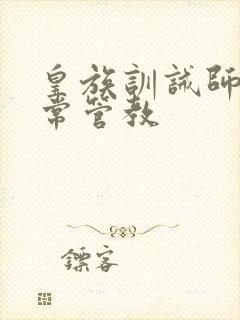 皇族訓誡師
常管教
鏢客